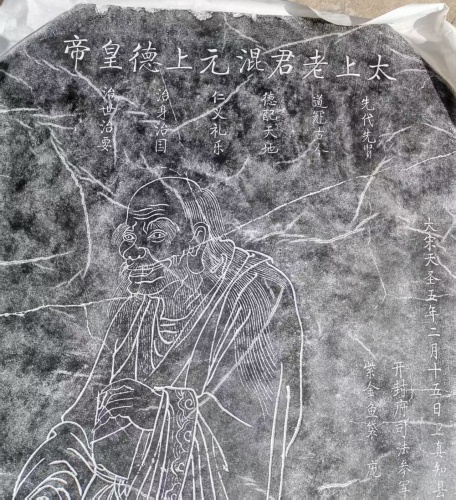 太上老君混元上德皇帝
先代先覺
道冠古今
德配天地
仁义礼乐
治身治国
治世治要
大宋天圣五年二月十五日立真知县
开封府司法参军
紫金鱼袋